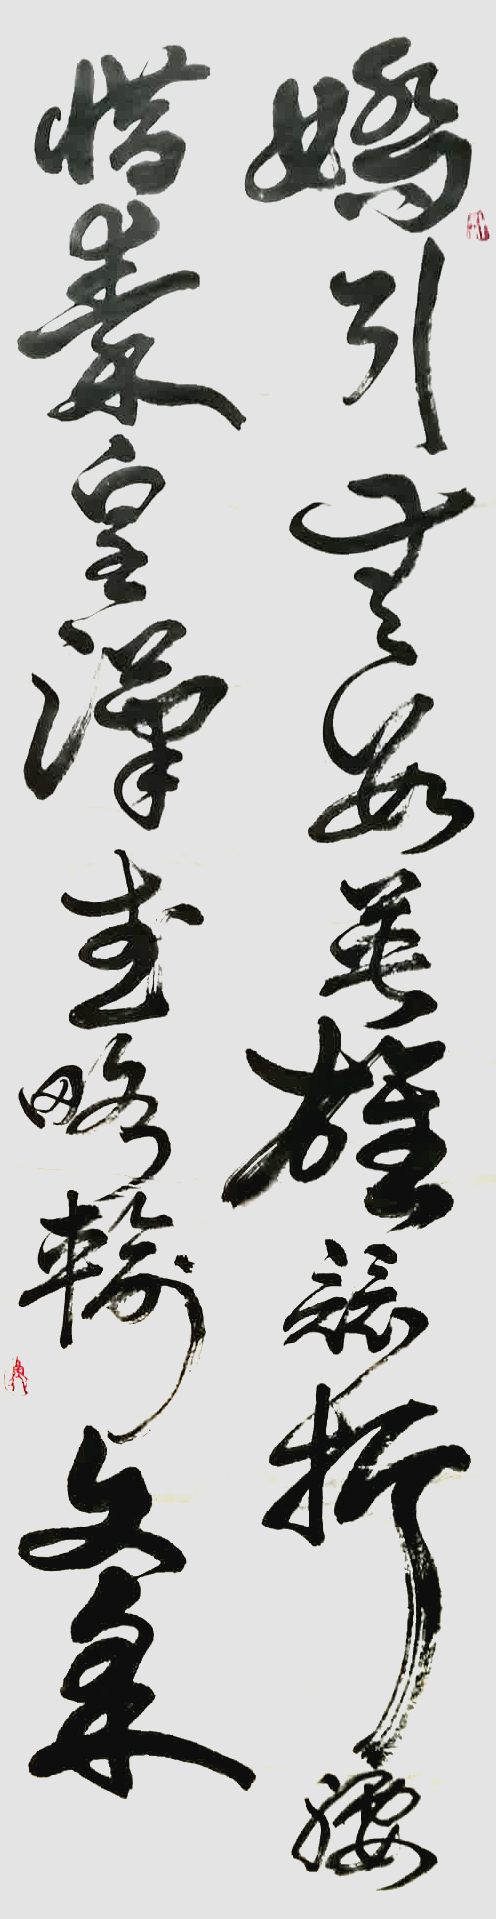 嬌引無數英雄競折腰
惜秦皇漢武略輸文采